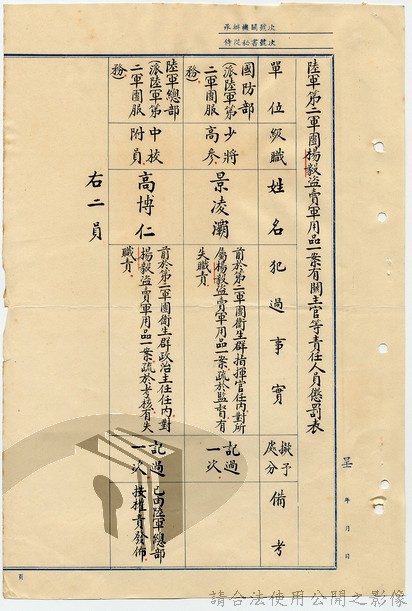 承辦機關號次
侍從秘書號次
陸軍第二軍團楊毅盜賣軍用品一案有關主官等責任人員懲罰表
呈 年 月 日
單位 級職 姓名 犯過事實 擬予處分 備考
國防部(派陸軍第二軍團服務)
少將高參
景凌灞
前於第二軍團衛生群指揮官任內對所屬楊毅盜賣軍用品一案疏於監督有失職責
記過一次
陸軍總部(派陸軍第二軍團服務)
中校附員
高博仁
前於第二軍團衛生群政治主任任內對楊毅盜賣軍用品一案疏於考核有失職責
記過一次
已由陸軍總部按權責發佈
右二員
請合法使用公開之影像